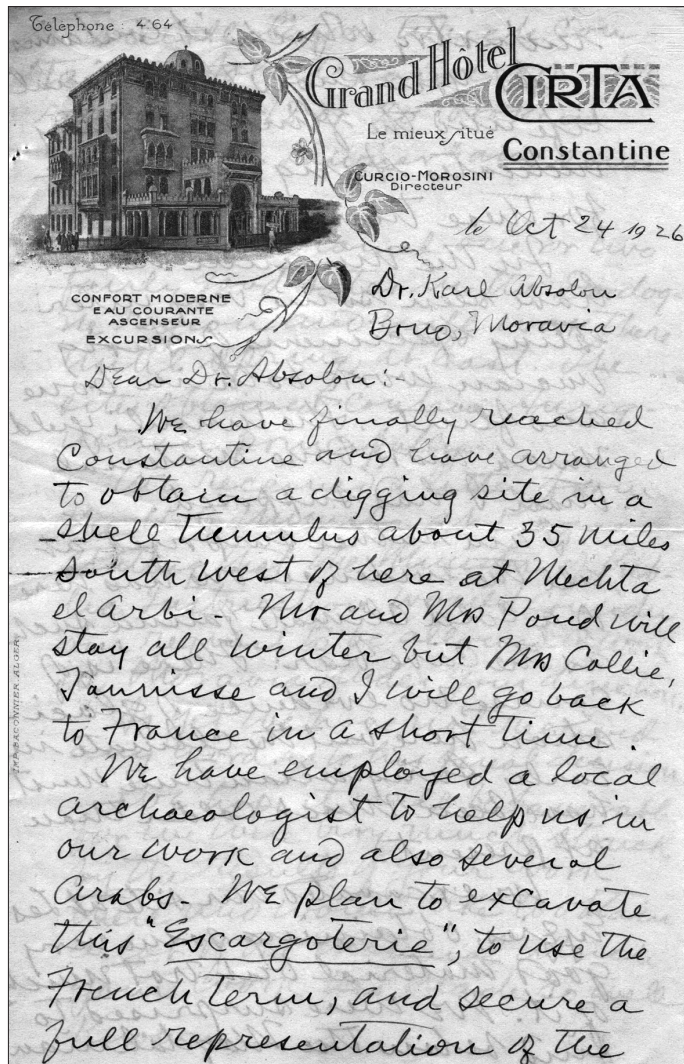 Téléphone : 4.64
Grand Hôtel
CIRTA
Le mieux situé
Constantine
CURCIO-MOROSINI
Directeur
le Oct 24 1926
CONFORT MODERNE
EAU COURANTE
ASCENSEUR
EXCURSIONS
Dr. Karl Absolon
Brno, Moravia
Dear Dr. Absolon:-
We have finally reached
Constantine and have arranged
to obtain a digging site in a
shell tumulus about 35 miles
south west of here at Mechta
el Arbi - Mr and Mrs Pond will
stay all winter but Mrs Collie,
Tannisse and I will go back
to France in a short time.
We have employed a local
archaeologist to help us in
our work and also several
Arabs - We plan to excavate
this "Escargoterie", to use the
French term, and secure a
full representation of the
IMP. BACONNIER, ALGER